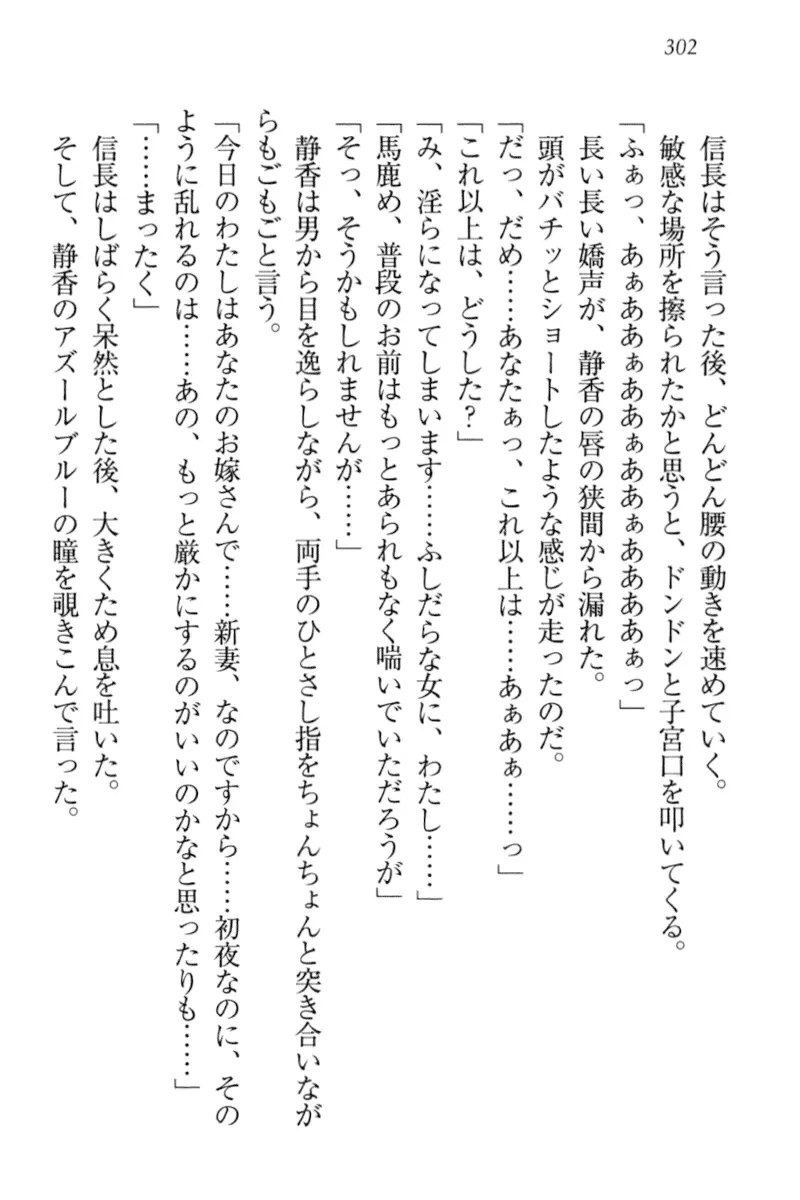 302
信長はそう言った後、どんどん腰の動きを速めていく。
敏感な場所を擦られたかと思うと、ドンドンと子宮口を叩いてくる。
「ふぁっ、あぁああぁああぁああぁああああぁっ」
長い長い嬌声が、静香の唇の狭間から漏れた。
頭がバチッとショートしたような感じが走ったのだ。
「だっ、だめ……あなたぁっ、これ以上は……あぁあぁ……っ」
「これ以上は、どうした？」
「み、淫らになってしまいます……ふしだらな女に、わたし……」
「馬鹿め、普段のお前はもっとあられもなく喘いでいただろうが」
「そっ、そうかもしれませんが……」
静香は男から目を逸らしながら、両手のひとさし指をちょんちょんと突き合いなが
らもごもごと言う。
「今日のわたしはあなたのお嫁さんで……新妻、なのですから……初夜なのに、その
ように乱れるのは……あの、もっと厳かにするのがいいのかなと思ったりも……」
「……まったく」
信長はしばらく呆然とした後、大きくため息を吐いた。
そして、静香のアズールブルーの瞳を覗きこんで言った。